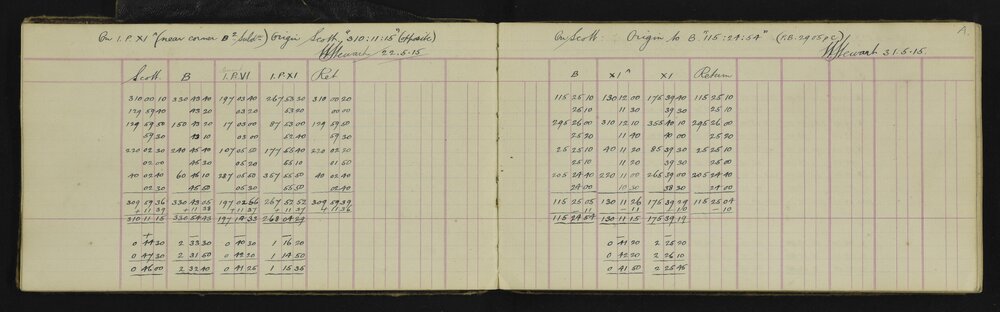 On I.P. XI ^ (near corner B² Suld²) Origin Scott "310:11:15" (Opside)
W Stewart 22.5.15
Scott B I.P.VI I.P.XI Ret
310 00 10 330 43 40 197 03 40 267 53 30 310 00 20
129 59 40 43 20 03 20 53 20 00 00
129 59 50 150 43 20 17 03 00 87 53 00 129 59 50
59 30 43 10 03 00 52 40 59 30
220 02 30 240 45 40 107 05 50 177 55 40 220 02 20
02 00 45 30 05 20 55 10 01 50
40 02 40 60 46 10 287 05 50 357 55 50 40 02 40
02 30 45 50 05 30 55 50 02 40
309 59 36 330 43 05 197 02 56 267 52 52 309 59 39
+ 11 39 + 11 38 + 11 37 + 11 37 + 11 36
310 11 15 330 54 43 197 14 33 268 04 29
0 44 30 2 33 30 0 40 30 1 16 20
0 47 30 2 31 50 0 42 20 1 14 50
0 46 00 2 32 40 0 41 25 1 15 35
A.
On Scott: Origin to B "115:24:54" (F.B. 2905 p.C)
W Stewart 31.5.15
B XI ^ XI Return
115 25 10 130 12 00 175 39 40 115 25 10
25 10 11 30 39 30 25 10
295 26 00 310 12 10 355 40 10 295 26 00
25 20 11 40 40 00 25 20
25 25 10 40 11 20 85 39 30 25 25 10
25 10 11 20 39 30 25 00
205 24 40 220 11 00 265 39 00 205 24 40
24 00 10 30 38 30 24 00
115 25 05 130 11 26 175 39 29 115 25 04
- 11 - 11 - 10 - 10
115 24 54 130 11 15 175 39 19
0 41 20 2 25 20
0 42 20 2 26 10
0 41 50 2 25 45